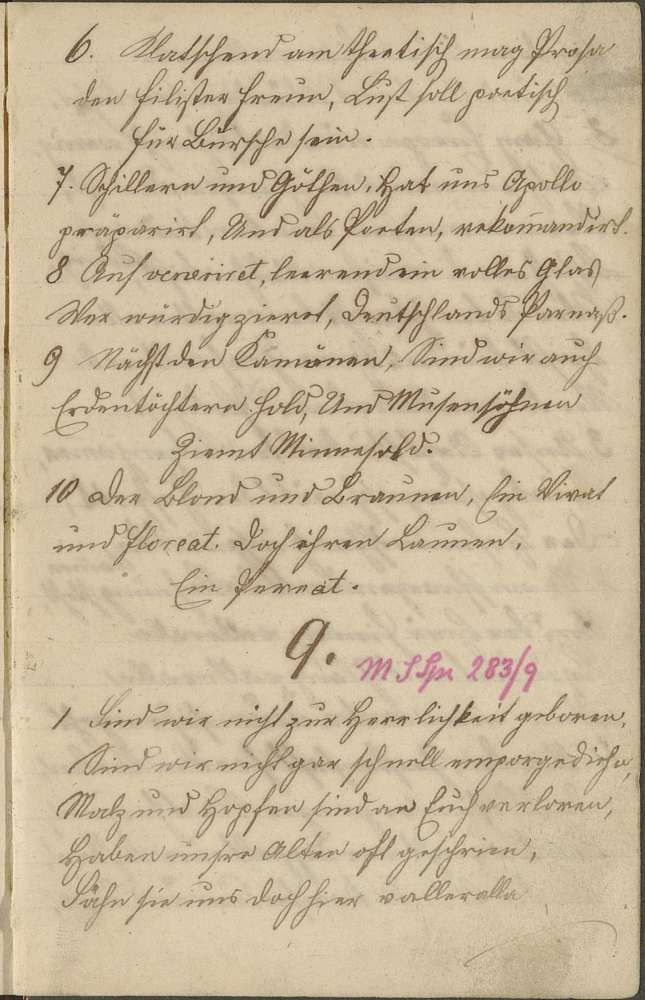 6. Klatschend am Theetisch mag Prosa
den Filister freun, Lust soll poetisch
für Bursche sein.
7. Schillern und Göthen, Hat uns Apollo
präparirt, Und als Poeten, rekomandirt.
8 Auf leerend ein volles Glas
Wer würdig zieret, Deutschlands Parnaß.
9 Nächst den Kamönen, Sind wir auch
Erdentöchtern hold, Und Musensöhnen
Ziemt Minnesold.
10 Den Blond und Braunen, Ein Vivat
und floreat. Doch ihren Launen,
Ein Pereat.
9.
M S Spr 283/9
1 Sind wir nicht zur Herrlichkeit geboren,
Sind wir nicht gar schnell emporgediehn,
Malz und Hopfen sind an Euch verloren,
Haben unsre Alten oft geschrien,
Sähn sie uns doch hier valleralla